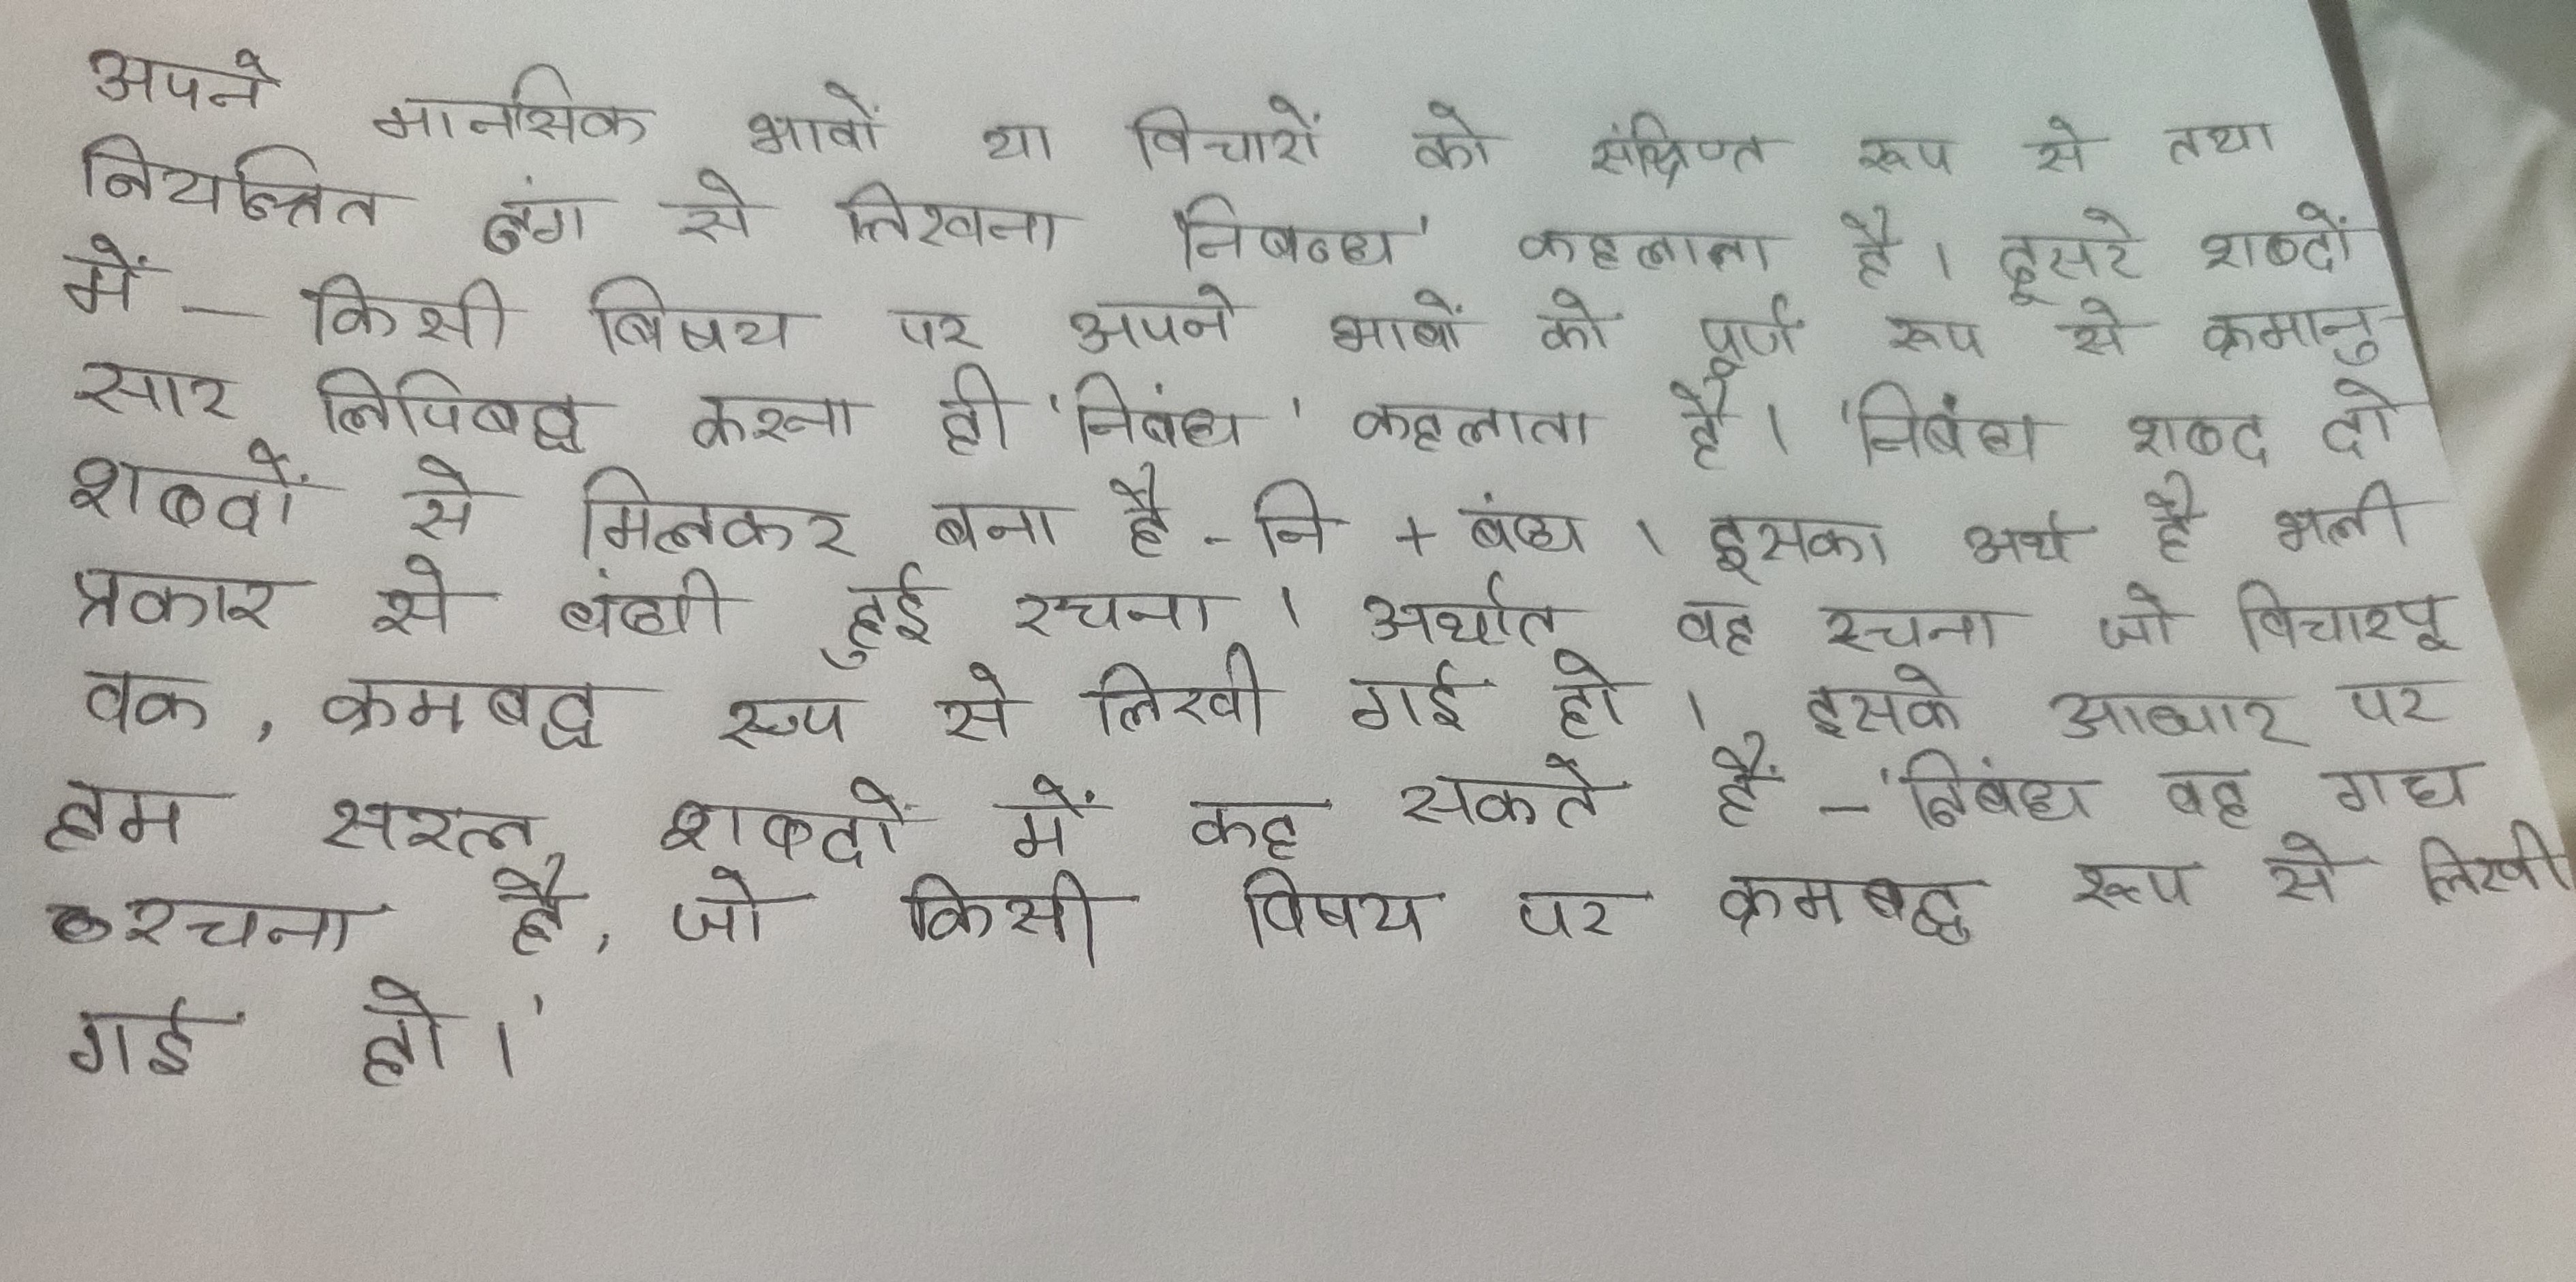 अपने मानसिक भावों या विचारों को संक्षिप्त रूप से तथा
नियन्त्रित ढंग से लिखना 'निबन्ध' कहलाता है। दूसरे शब्दों
में - किसी विषय पर अपने भावों को पूर्ण रूप से क्रमानु-
सार लिपिबद्ध करना ही 'निबंध' कहलाता है। 'निबंध शब्द दो
शब्दों से मिलकर बना है - नि + बंध। इसका अर्थ है भली
प्रकार से बंधी हुई रचना। अर्थात वह रचना जो विचारपू
वक, क्रमबद्ध रूप से लिखी गई हो। इसके आधार पर
हम सरल शब्दों में कह सकते हैं - 'निबंध वह गद्य
रचना है, जो किसी विषय पर क्रमबद्ध रूप से लिखी
गई हो।'